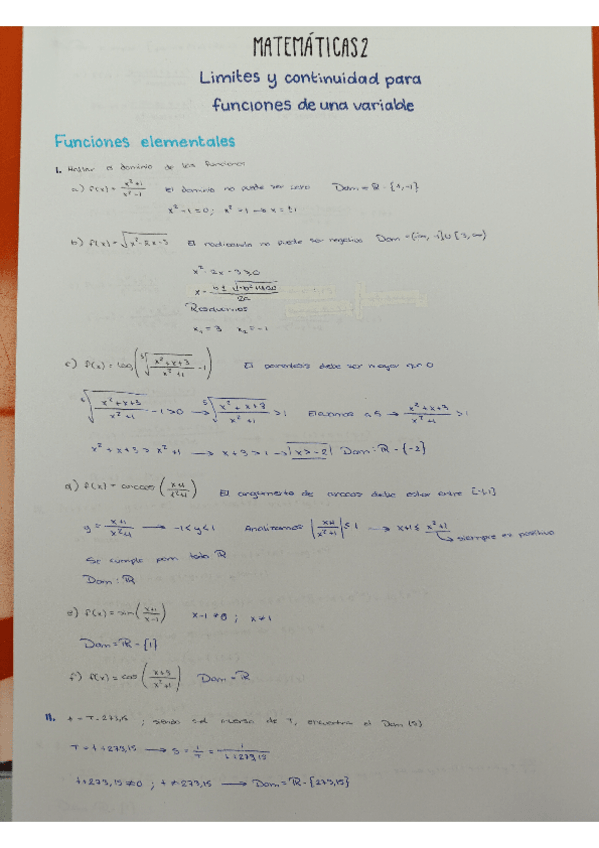 MATEMÁTICAS 2
Limites y continuidad para
funciones de una variable
Funciones elementales
I. Hallar el dominio de las funciones
a) f(x) = (x²+1)/(x²-1) El dominio no puede ser cero Dom = ℝ - {1,-1}
x²-1=0; x²=1 → x=±1
b) f(x) = √(x²-2x-3) El radicando no puede ser negativo Dom = ∞)
x²-2x-3≥0
x =
Resolvemos
x₁ = 3 x₂ = -1
c) f(x) = log(⁵√((x²+x+3)/(x²+1)) -1) El paréntesis debe ser mayor que 0
⁵√((x²+x+3)/(x²+1)) -1>0 → ⁵√((x²+x+3)/(x²+1)) >1 Elevamos a 5 → (x²+x+3)/(x²+1) >1
x²+x+3 > x²+1 → x+3>1 → x>-2 Dom: ℝ - {-2}
d) f(x) = arccos((x+1)/(x²+1)) El argumento de arccos debe estar entre [-1,1]
y = (x+1)/(x²+1) → -1<y<1 Analizamos |(x+1)/(x²+1)| ≤ 1 → x+1 ≤ x²+1
siempre es positivo
Se cumple para todo ℝ
Dom: ℝ
e) f(x) = sin((x+1)/(x-1)) x-1≠0; x≠1
Dom = ℝ - {1}
f) f(x) = cos((x+3)/(x²+1)) Dom = ℝ
II. t = T-273,15; siendo S el inverso de T, encuentra el Dom (S)
T = t+273,15 → S = 1/T = 1/(t+273,15)
t+273,15≠0; t≠273,15 → Dom = ℝ - {273,15}